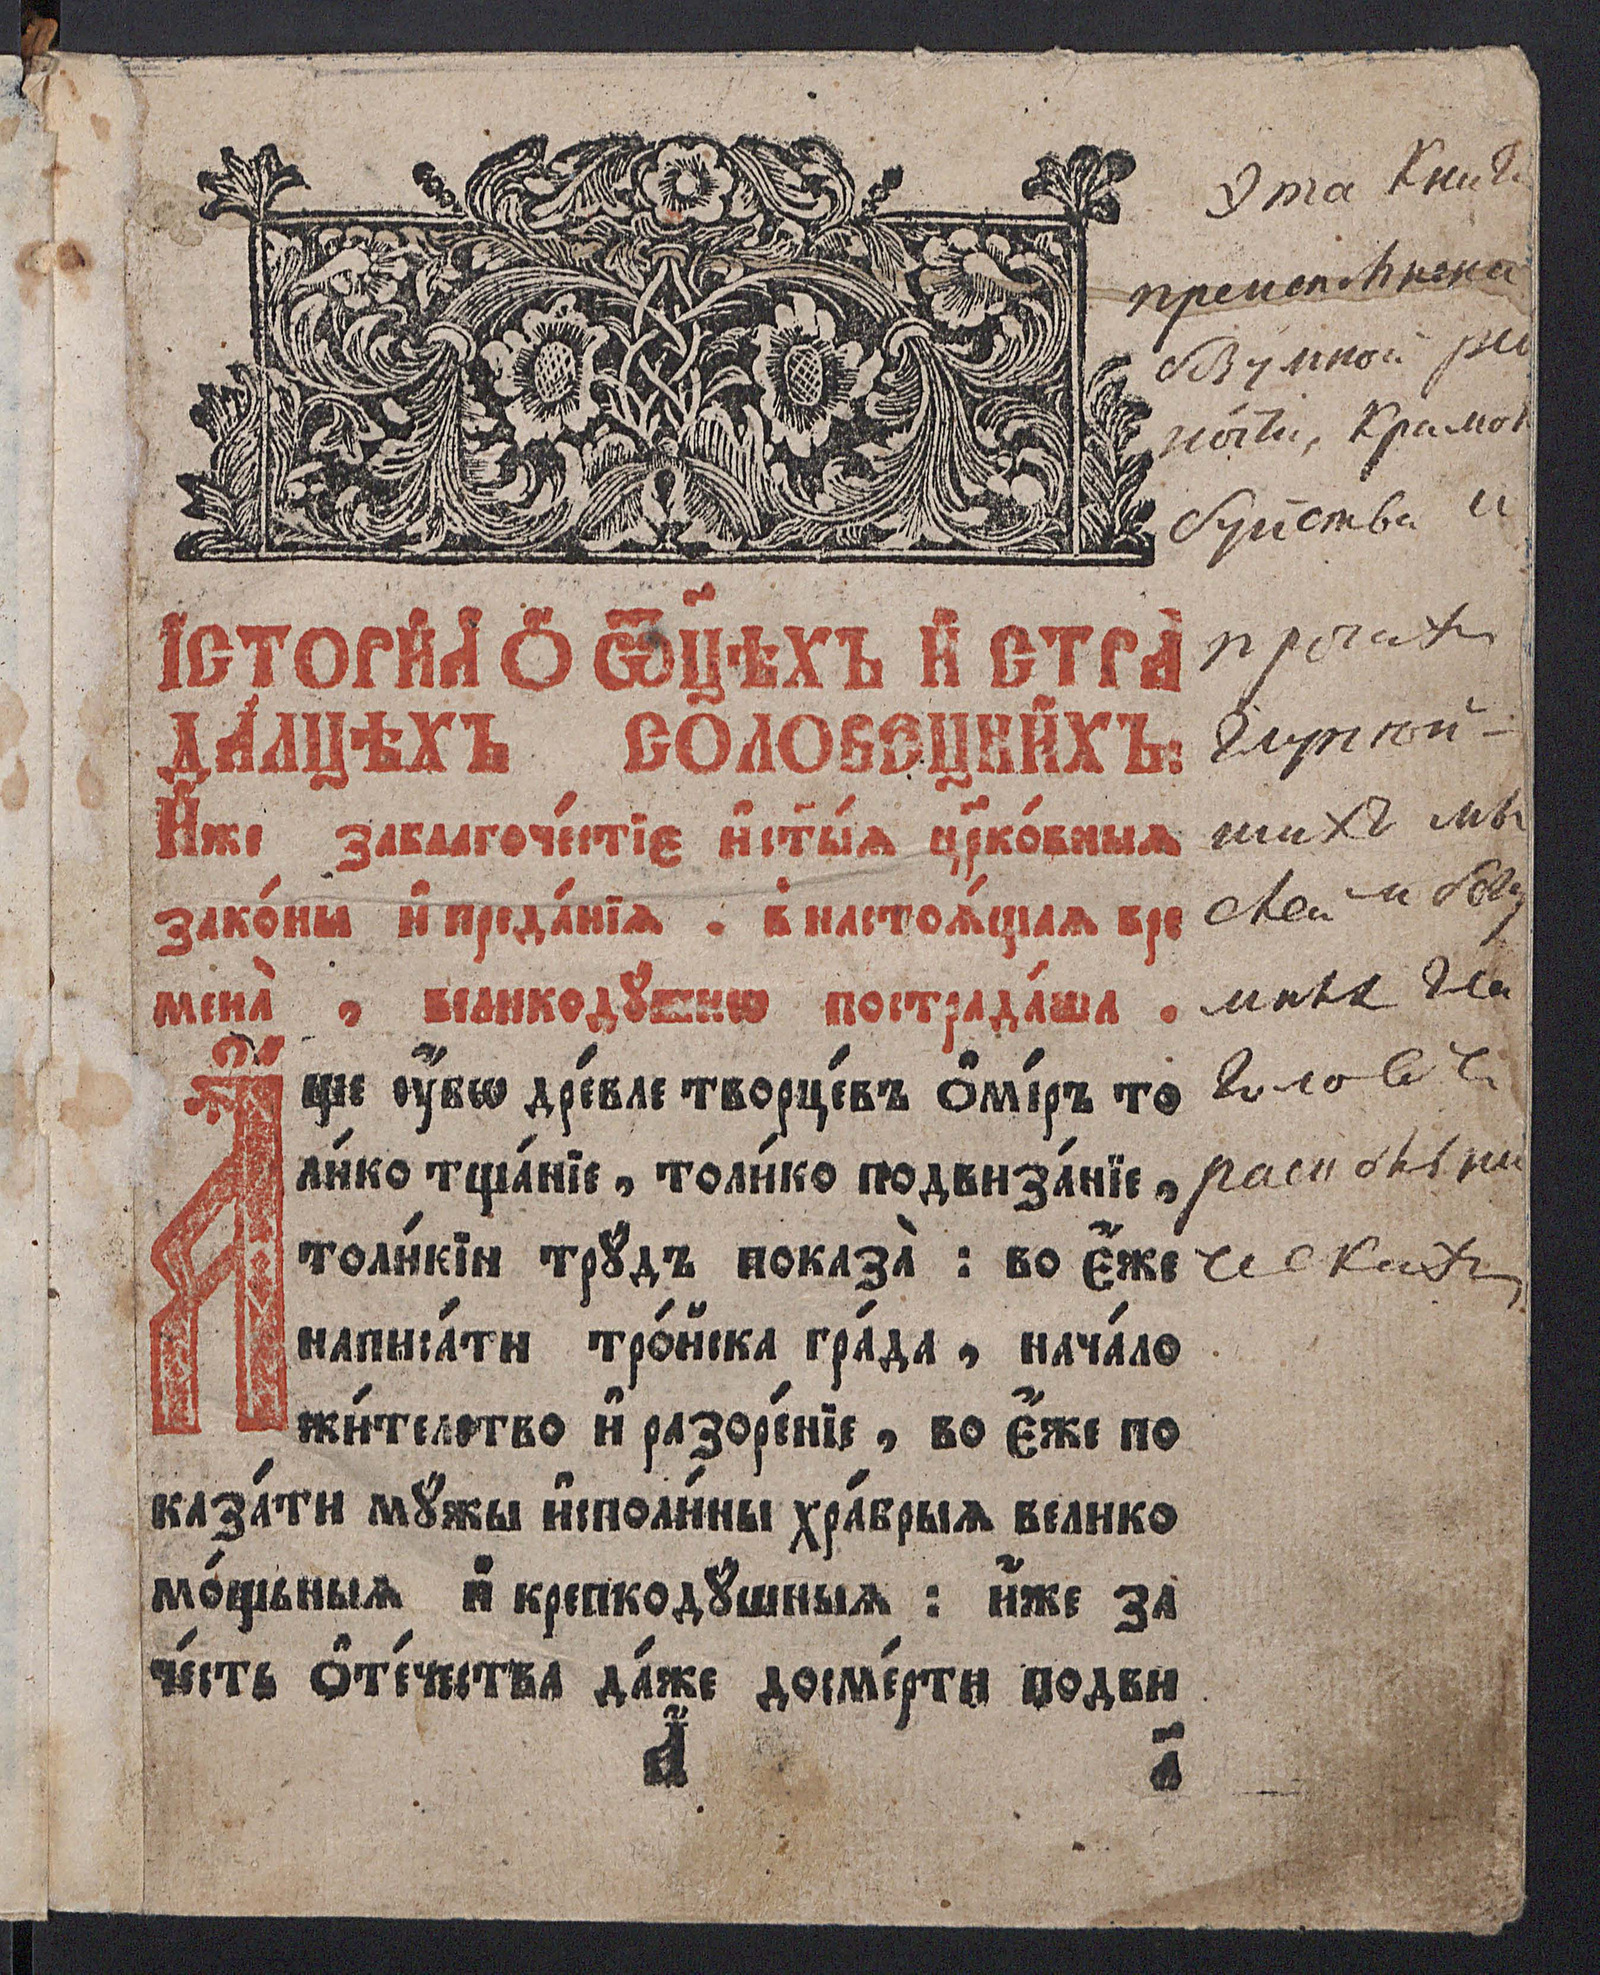 І҆СТОРИ́Ѧ Ѻ҆ ѾЦ҃ѢХЪ И҆ СТРА̀
ДА́ЛЦѢХЪ СОЛОВЕЦКИ́ХЪ:
И҆́же заблагоче́стїе и҆ст҃ы́ѧ цр҃ко́вныѧ
зако́ны и҆ преда́нїѧ . в настоѧ́щаѧ вре
мена̀ , великодꙋ́шнѡ пострада́ша .
А҆́ще ѹ҆́бѡ дре́вле творце́въ Ѻ҆ми́ръ то
ли́ко тща́нїе , толи́ко подвиза́нїе ,
толи́кїи трꙋ́дъ показа̀ : во є҆́же
написа́ти тро́йска гра́да , нача́ло
жи́телство и҆ разоре́нїе , во є҆́же по
каза́ти мꙋ́жы и҆споли́ны хра́брыѧ велико
мо́щьныѧ и҆ крепкодꙋ́шныѧ : и҆́же за
че́сть ѻ҆те́чества да́же досме́рти подви
а҃ а҃
Эта Книг
преисполнена
бунства и
прочих
глупой-
ших мы
слей и
голов
расколни
ческих,